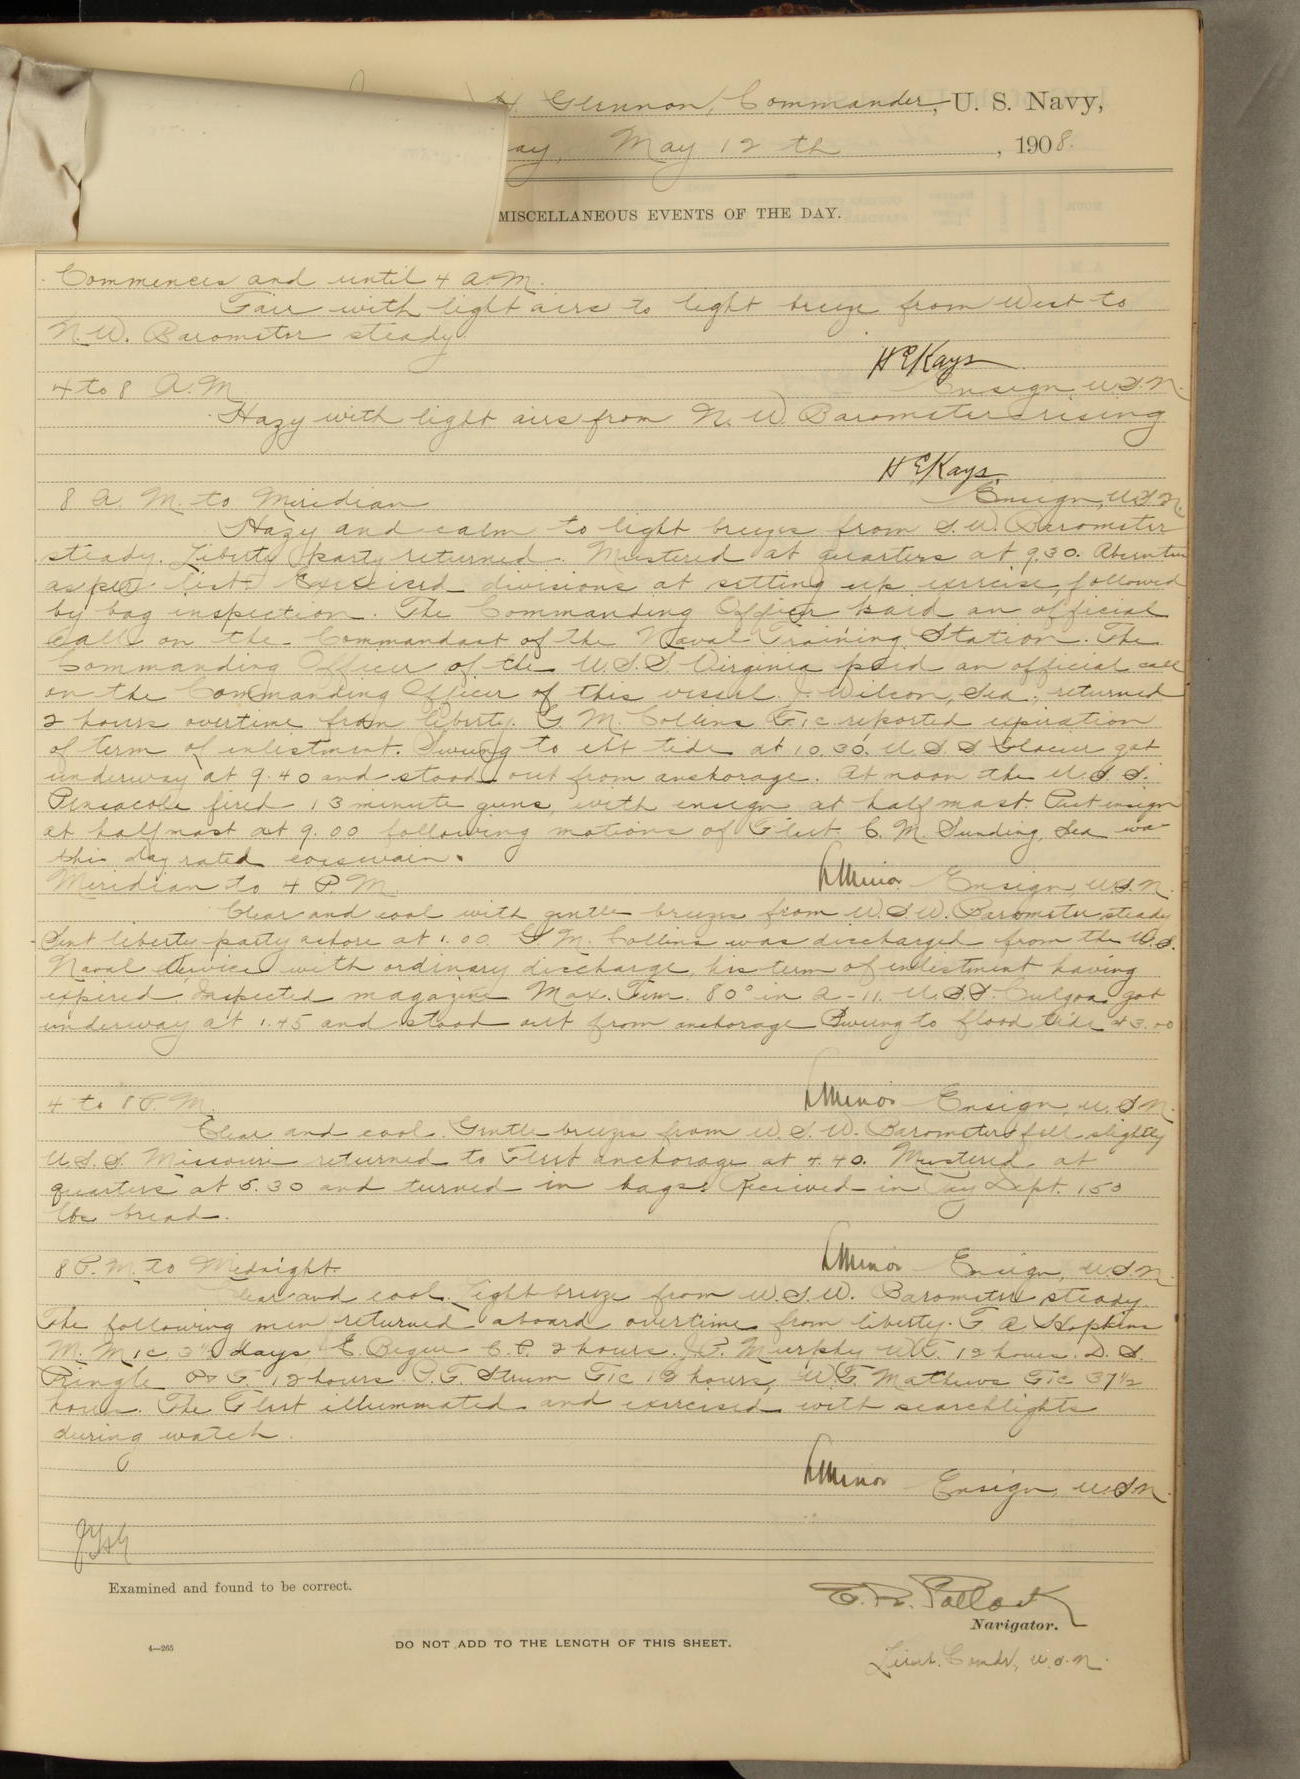 H. Glennon, Commander, U. S. Navy,
ay, May 12 th, 1908.
MISCELLANEOUS EVENTS OF THE DAY.
Commences and until 4 A.M.
Fair with light airs to light breeze from West to
N.W. Barometer steady.
H E Kays
4 to 8 A.M. Ensign, U.S.N.
Hazy with light airs from N. W. Barometer rising
H E Kays
8 A. M. to Meridian Ensign, U.S.N.
Hazy and calm to light breezes from S.W. Barometer
steady. Liberty party returned. Mustered at quarters at 9.30. Absentees
as per list. Exercised divisions at setting up exercise, followed
by bag inspection. The Commanding Officer paid an official
call on the Commandant of the Naval Training Station. The
Commanding Officer of the U.S.S. Virginia paid an official call
on the Commanding Officer of this vessel. J. Wilson, Sea., returned
2 hours overtime from liberty. G. M. Collins F.1c. reported expiration
of term of enlistment. Swung to ebb tide at 10.30. U.S.S. Glacier got
underway at 9.40 and stood out from anchorage. At noon the U.S.S.
Pensacola fired 13 minute guns, with ensign at half mast. Put ensign
at half mast at 9.00 following motions of Fleet. C. M. Sunding, Sea was
this day rated coxswain.
Meridian to 4 P.M. L Minor Ensign, U.S.N.
Clear and cool with gentle breezes from W.S.W. Barometer steady
Sent liberty party ashore at 1.00. G. M. Collins was discharged from the U.S.
Naval Service with ordinary discharge, his term of enlistment having
expired. Inspected magazine Max. Tem. 80° in A-11. U.S.S. Culgoa got
underway at 1.45 and stood out from anchorage. Swung to flood tide at 3.00
4 to 8 P.M. L Minor Ensign, U.S.N.
Clear and cool. Gentle breezes from W.S.W. Barometer fell slightly
U.S.S. Missouri returned to Fleet anchorage at 4.40. Mustered at
quarters at 5.30 and turned in bags. Received in Pay Dept. 150
lbs bread.
8 P.M. to Midnight. L Minor Ensign, U.S.N.
Clear and cool. Light breeze from W.S.W. Barometer steady
The following men returned aboard overtime from liberty. F. A Hopkins
M.M.1c. 3½ days, E. Begue C.P. 2 hours. J.P. Murphy W.T. 12 hours. D. S.
Pringle 12 hours P.F. Strum F1c 12 hours, W.F. Mathews F1c 37½
hours. The Fleet illuminated and exercised with searchlights
during watch.
L Minor Ensign, U.S.N.
JHG
Examined and found to be correct.
E. R. Pollock
Navigator.
4—265
DO NOT ADD TO THE LENGTH OF THIS SHEET.
Lieut. Comdr, U.S.N.